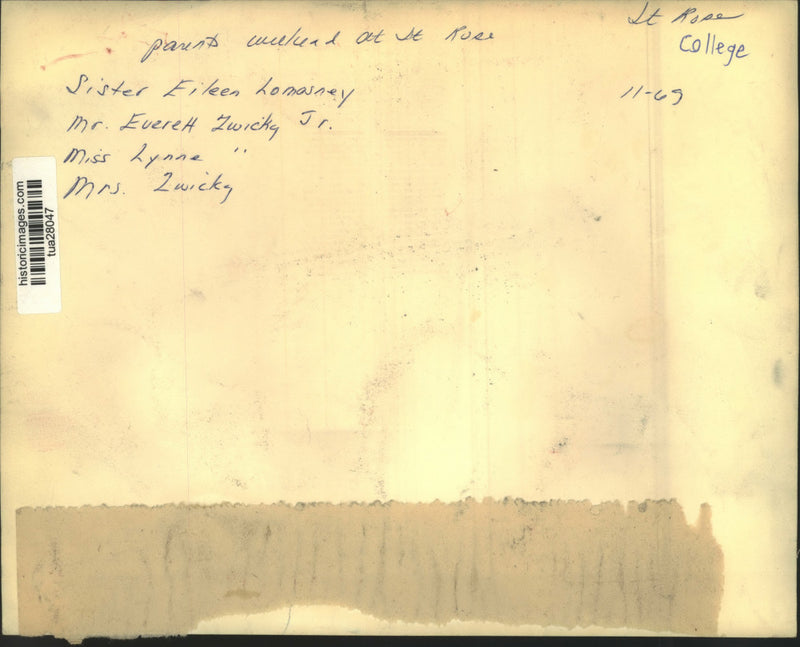 St Rose
College
parents weekend at St Rose
11-69
Sister Eileen Lomasney
Mr. Everett Zwicky Jr.
Miss Lynne "
Mrs. Zwicky
historicimages.com
tua28047